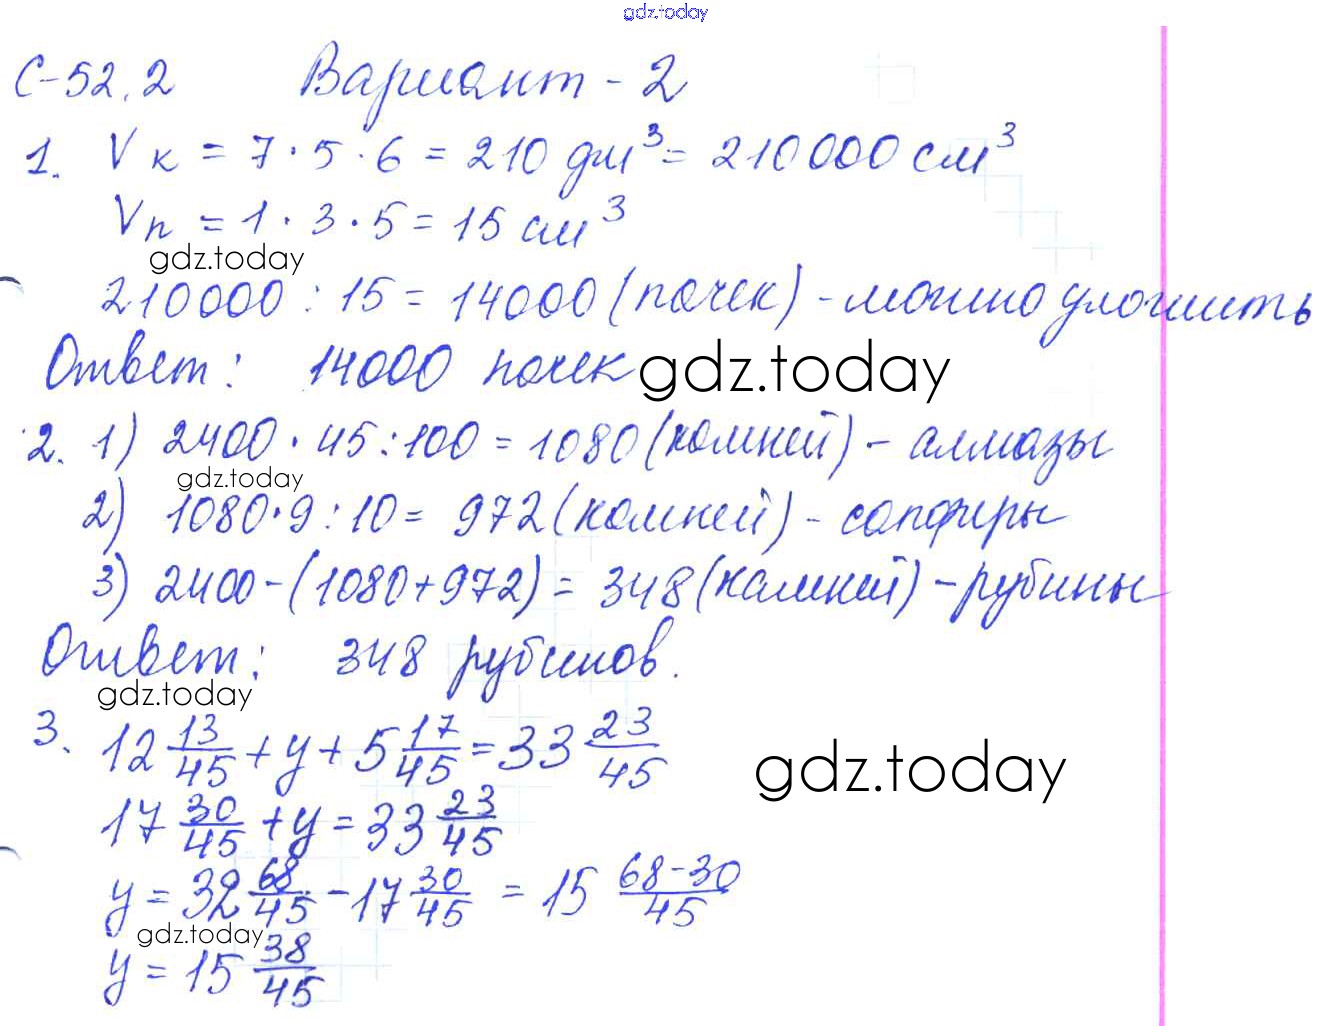 gdz.today
С-52.2 Вариант - 2
1. Vк = 7 · 5 · 6 = 210 дм³ = 210000 см³
Vп = 1 · 3 · 5 = 15 см³
gdz.today
210000 : 15 = 14000 (пачек) - можно уложить
Ответ: 14000 пачек
gdz.today
2. 1) 2400 · 45 : 100 = 1080 (камней) - алмазы
gdz.today
2) 1080 · 9 : 10 = 972 (камней) - сапфиры
3) 2400 - (1080 + 972) = 348 (камней) - рубины
Ответ: 348 рубинов.
gdz.today
3. 12 13/45 + y + 5 17/45 = 33 23/45
gdz.today
17 30/45 + y = 33 23/45
y = 32 68/45 - 17 30/45 = 15 68-30/45
gdz.today
y = 15 38/45